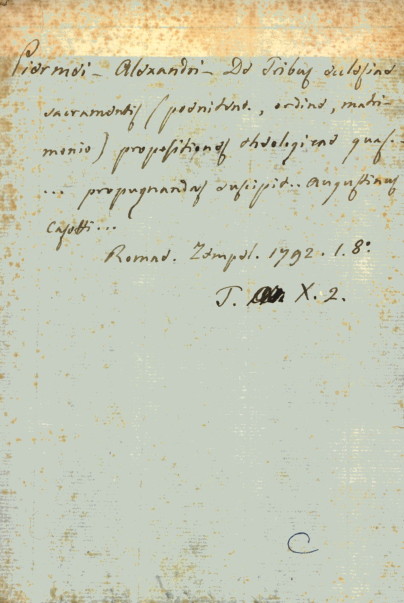 Piermei - Alexandri - De Tribus ecclesiae
sacramentis (poenitent., ordine, matri-
monio) propositiones theologicae quas..
... propugnandas suscipit.. Augustinus
Casotti...
Romae. Zempel. 1792. 1. 8°.
T. X. 2.
C